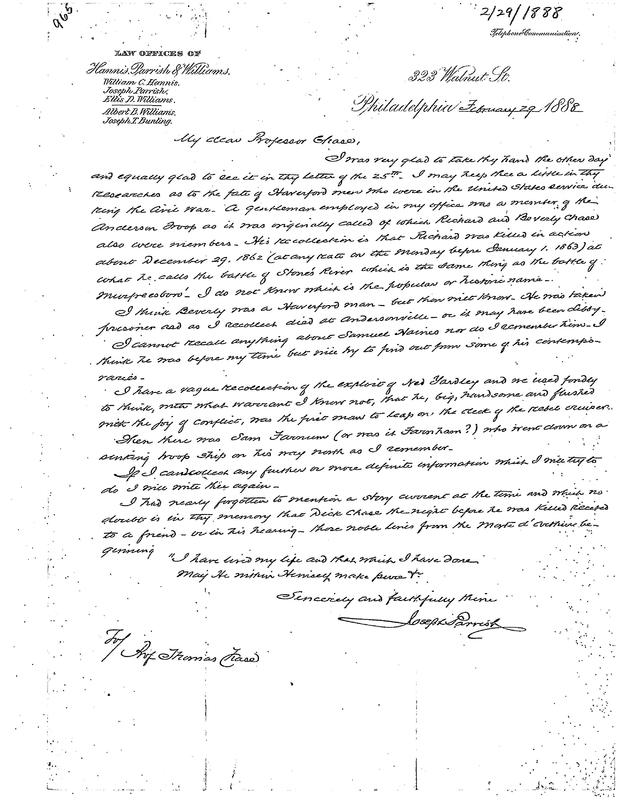 965
2/29/1888
Telephone Communication.
LAW OFFICES OF
Hannis, Parrish & Williams,
William C. Hannis,
Joseph Parrish,
Ellis D. Williams.
Albert D. Williams,
Joseph T. Bunting.
323 Walnut St.
Philadelphia February 29 1888
My dear Professor Chase,
I was very glad to take thy hand the other day
and equally glad to see it in thy letter of the 25th. I may help thee a little in thy
researches as to the fate of Haverford men who were in the United States service du-
ring the Civil War. A gentleman employed in my office was a member of the
Anderson Troop as it was originally called of which Richard and Beverly Chase
also were members. His recollection is that Richard was killed in action
about December 29, 1862 (at any rate on the Monday before January 1, 1863) at
what he calls the battle of Stone's River which is the same thing as the battle of
Murfreesboro'. I do not know which is the popular or historic name.
I think Beverly was a Haverford man - but thou wilt know. He was taken
prisoner and as I recollect died at Andersonville - or it may have been Libby.
I cannot recall anything about Samuel Haines nor do I remember him. I
think he was before my time but will try to find out from some of his contempo-
raries.
I have a vague recollection of the exploit of Ned Yardley and we used fondly
to think, with what warrant I know not, that he, big, handsome and flushed
with the joy of conflict, was the first man to leap on the deck of the rebel cruiser.
Then there was Sam Farnum (or was it Farnham?) who went down on a
sinking troop ship on his way north as I remember.
If I can collect any further or more definite information which I will try to
do I will write thee again.
I had nearly forgotten to mention a story current at the time and which no
doubt is in thy memory that Dick Chase the night before he was killed recited
to a friend - or in his hearing - those noble lines from the Morte d'Arthur be-
ginning
"I have lived my life and that which I have done
May He within Himself make pure &c.
Sincerely and faithfully thine
Joseph Parrish
To/
Prof Thomas Chase